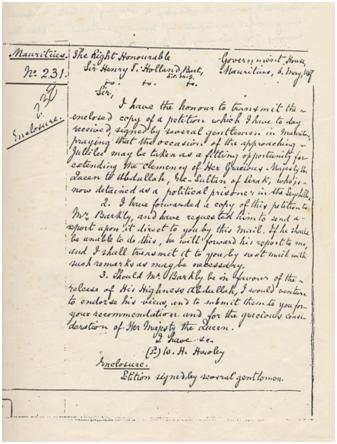 Mauritius.
No. 231.
Enclosure.
The Right Honourable
Sir Henry T. Holland Bart,
&c. &c. &c.
Government House,
Mauritius, 6. May,
Sir,
I have the honour to transmit the
enclosed copy of a petition which I have to day
received, signed by several gentlemen in Mauritius
praying that the occasion of the approaching
Jubilee may be taken as a fitting opportunity for
extending the clemency of Her Gracious Majesty the
Queen to Abdullah, The Sultan of Perak, who is
now detained as a political prisoner in the Seychelles.
2. I have forwarded a copy of this petition to
Mr Barkly, and have requested him to send a
report upon it direct to you by this Mail. If he should
be unable to do this, he will forward his report to me,
and I shall transmit it to you by next mail with
such remarks as may be necessary.
3. Should Mr Barkly be in favour of the
release of His Highness Abdullah, I would venture
to endorse his views, and to submit them to you for
your recommendation and for the gracious consi-
deration of Her Majesty the Queen.
I have &c
W. H. Hawley
Enclosure.
Petition signed by several gentlemen.